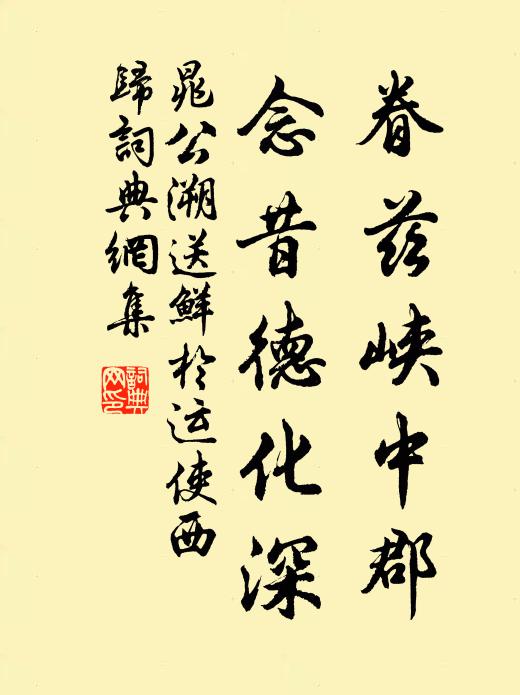 眷兹峽中郡
念昔德化深
晁公溯送鮮於运使西
歸詞典網集
詞典
网印